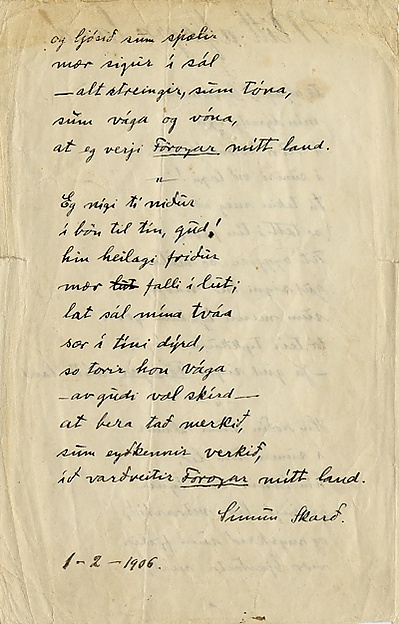 og ljósið sum spælir
mær sigur í sál
—alt streingir, sum tóna,
sum vága og vóna,
at eg verji Føroyar mítt land.
"
Eg nígi tí niður
í bøn til tín, gud!
hin heilagi friður
mær lut falli í lut;
lat sál mína tváa
sær í tíni dýrd,
so torir hon vága
—av gudi væl skírd—
at bera tað merkið,
sum eyðkennir verkið,
ið varðveitir Føroyar mítt land.
Símun Skarð.
1-2-1906.